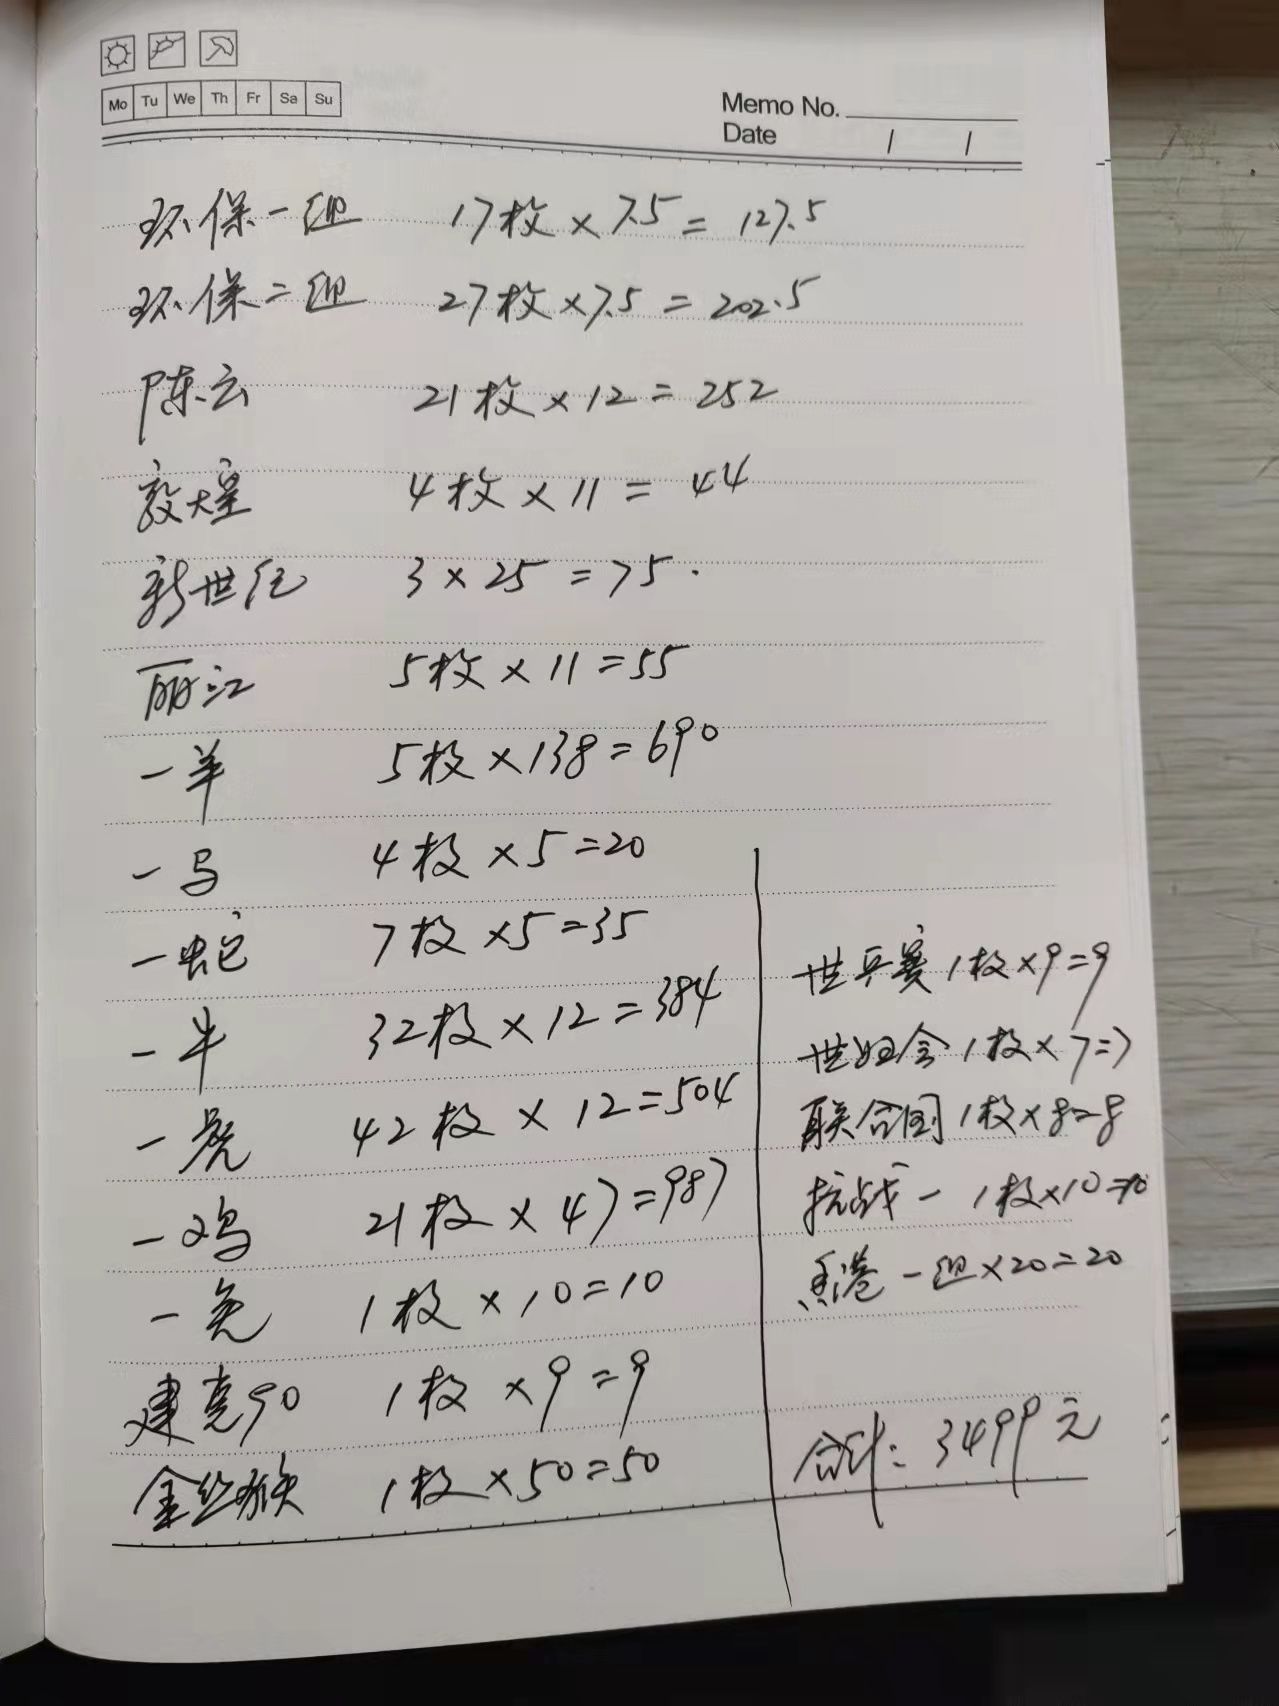 Mo Tu We Th Fr Sa Su
Memo No.
Date / /
环保一组 17枚×7.5=127.5
环保二组 27枚×7.5=202.5
陈云 21枚×12=252
敦煌 4枚×11=44
新世纪 3×25=75.
丽江 5枚×11=55
一羊 5枚×138=690
一马 4枚×5=20
一蛇 7枚×5=35
一牛 32枚×12=384
一虎 42枚×12=504
一鸡 21枚×47=987
一兔 1枚×10=10
建党90 1枚×9=9
金丝猴 1枚×50=50
世乒赛 1枚×9=9
世妇会 1枚×7=7
联合国 1枚×8=8
抗战一 1枚×10=10
香港一组×20=20
合计:3499元